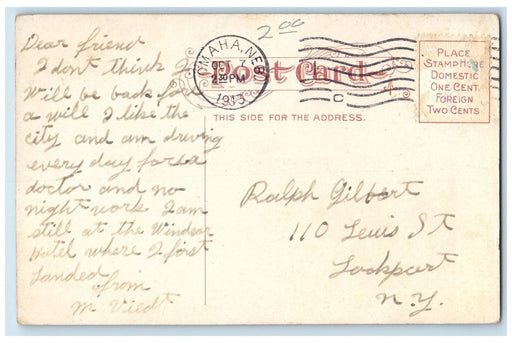 2.00
OMAHA, NEB.
OCT 7
2 30 PM
1913
Post Card
PLACE
STAMP HERE
DOMESTIC
ONE CENT
FOREIGN
TWO CENTS
THIS SIDE FOR THE ADDRESS.
Dear friend
I dont think I
will be back for
a will I like the
city and am driving
every day for a
doctor and no
night work I am
still at the Windsor
Hotel where I first
Landed
from
M Viedt
Ralph Gilbert
110 Lewis St
Lockport
N.Y.